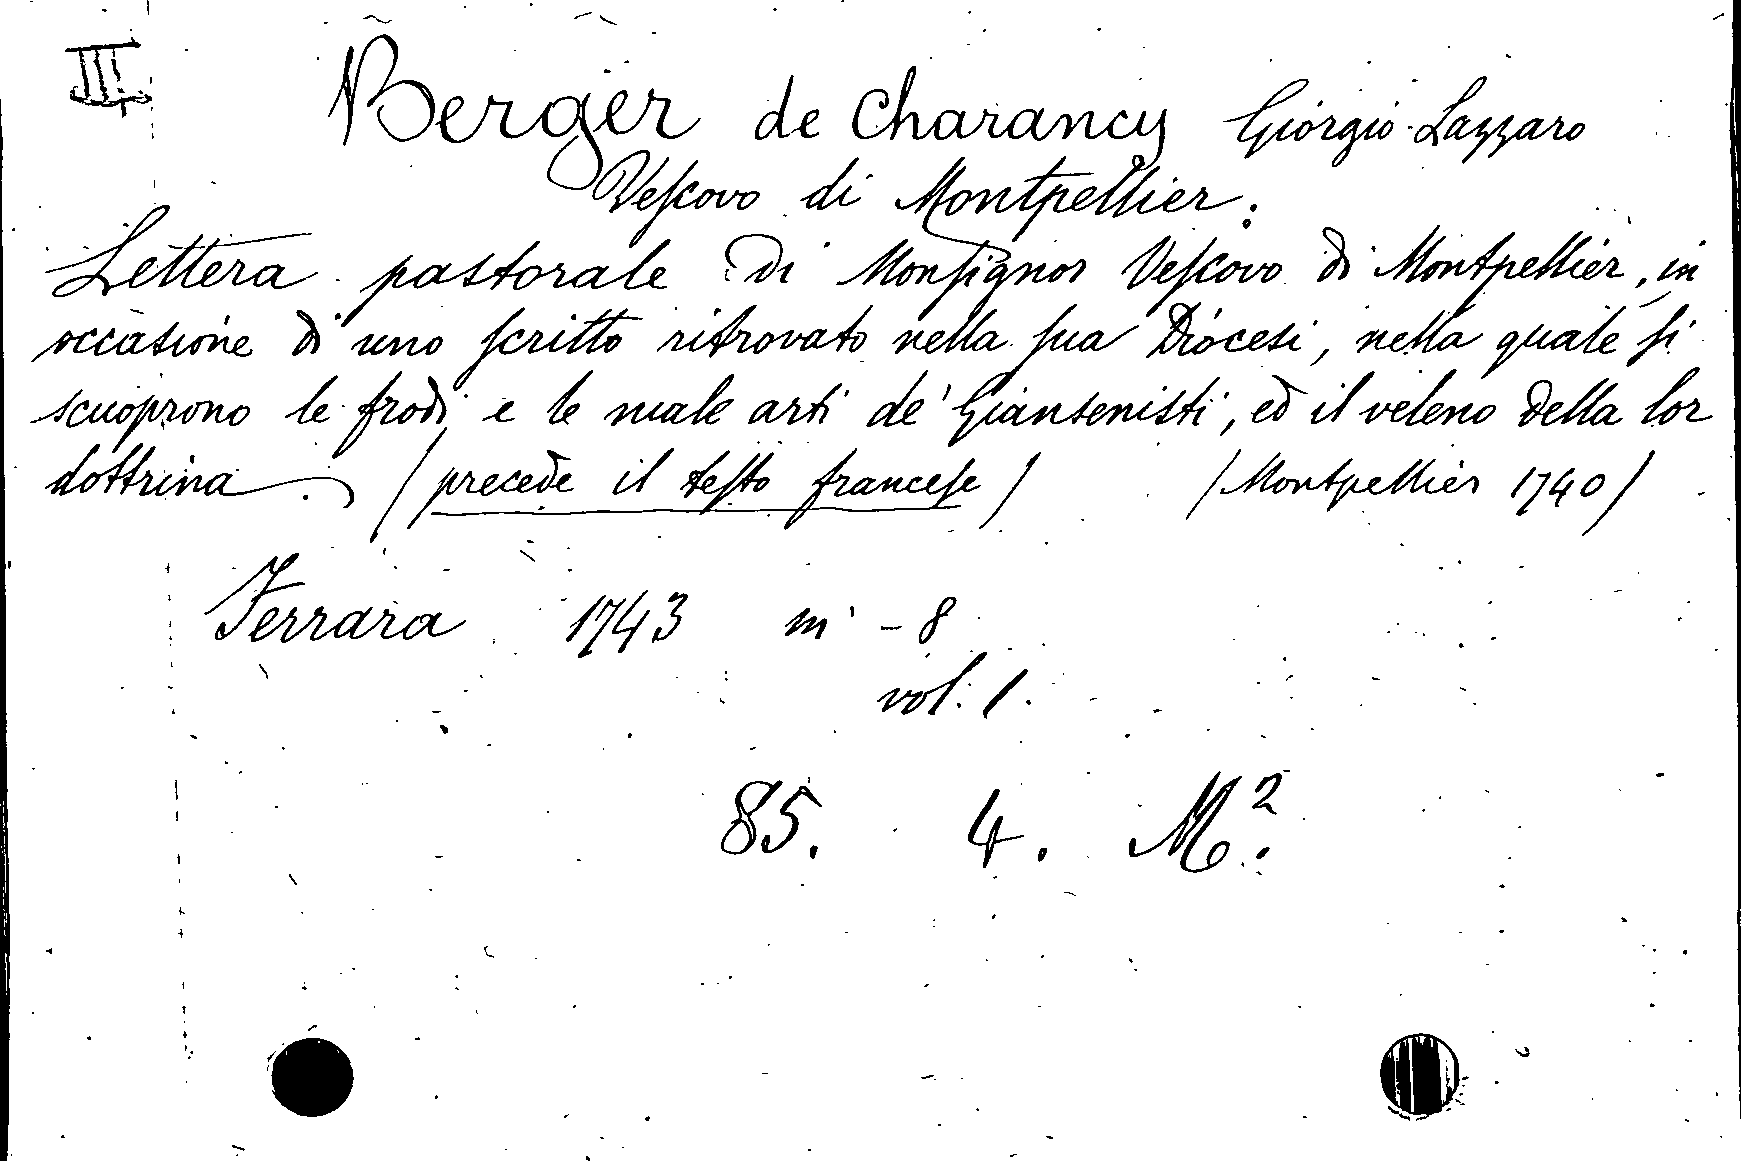 III
Berger de Charancy Giorgio Lazzaro
Vescovo di Montpellier.
Lettera pastorale di Monsignor Vescovo di Montpellier, in
occasione di uno scritto ritrovato nella sua Diocesi, nella quale si
scuoprono le frodi e le male arti de' Giansenisti, ed il veleno della lor
dottrina (precede il testo francese) (Montpellier 1740)
Ferrara 1743 in - 8
vol. 1.
85. 4. M².